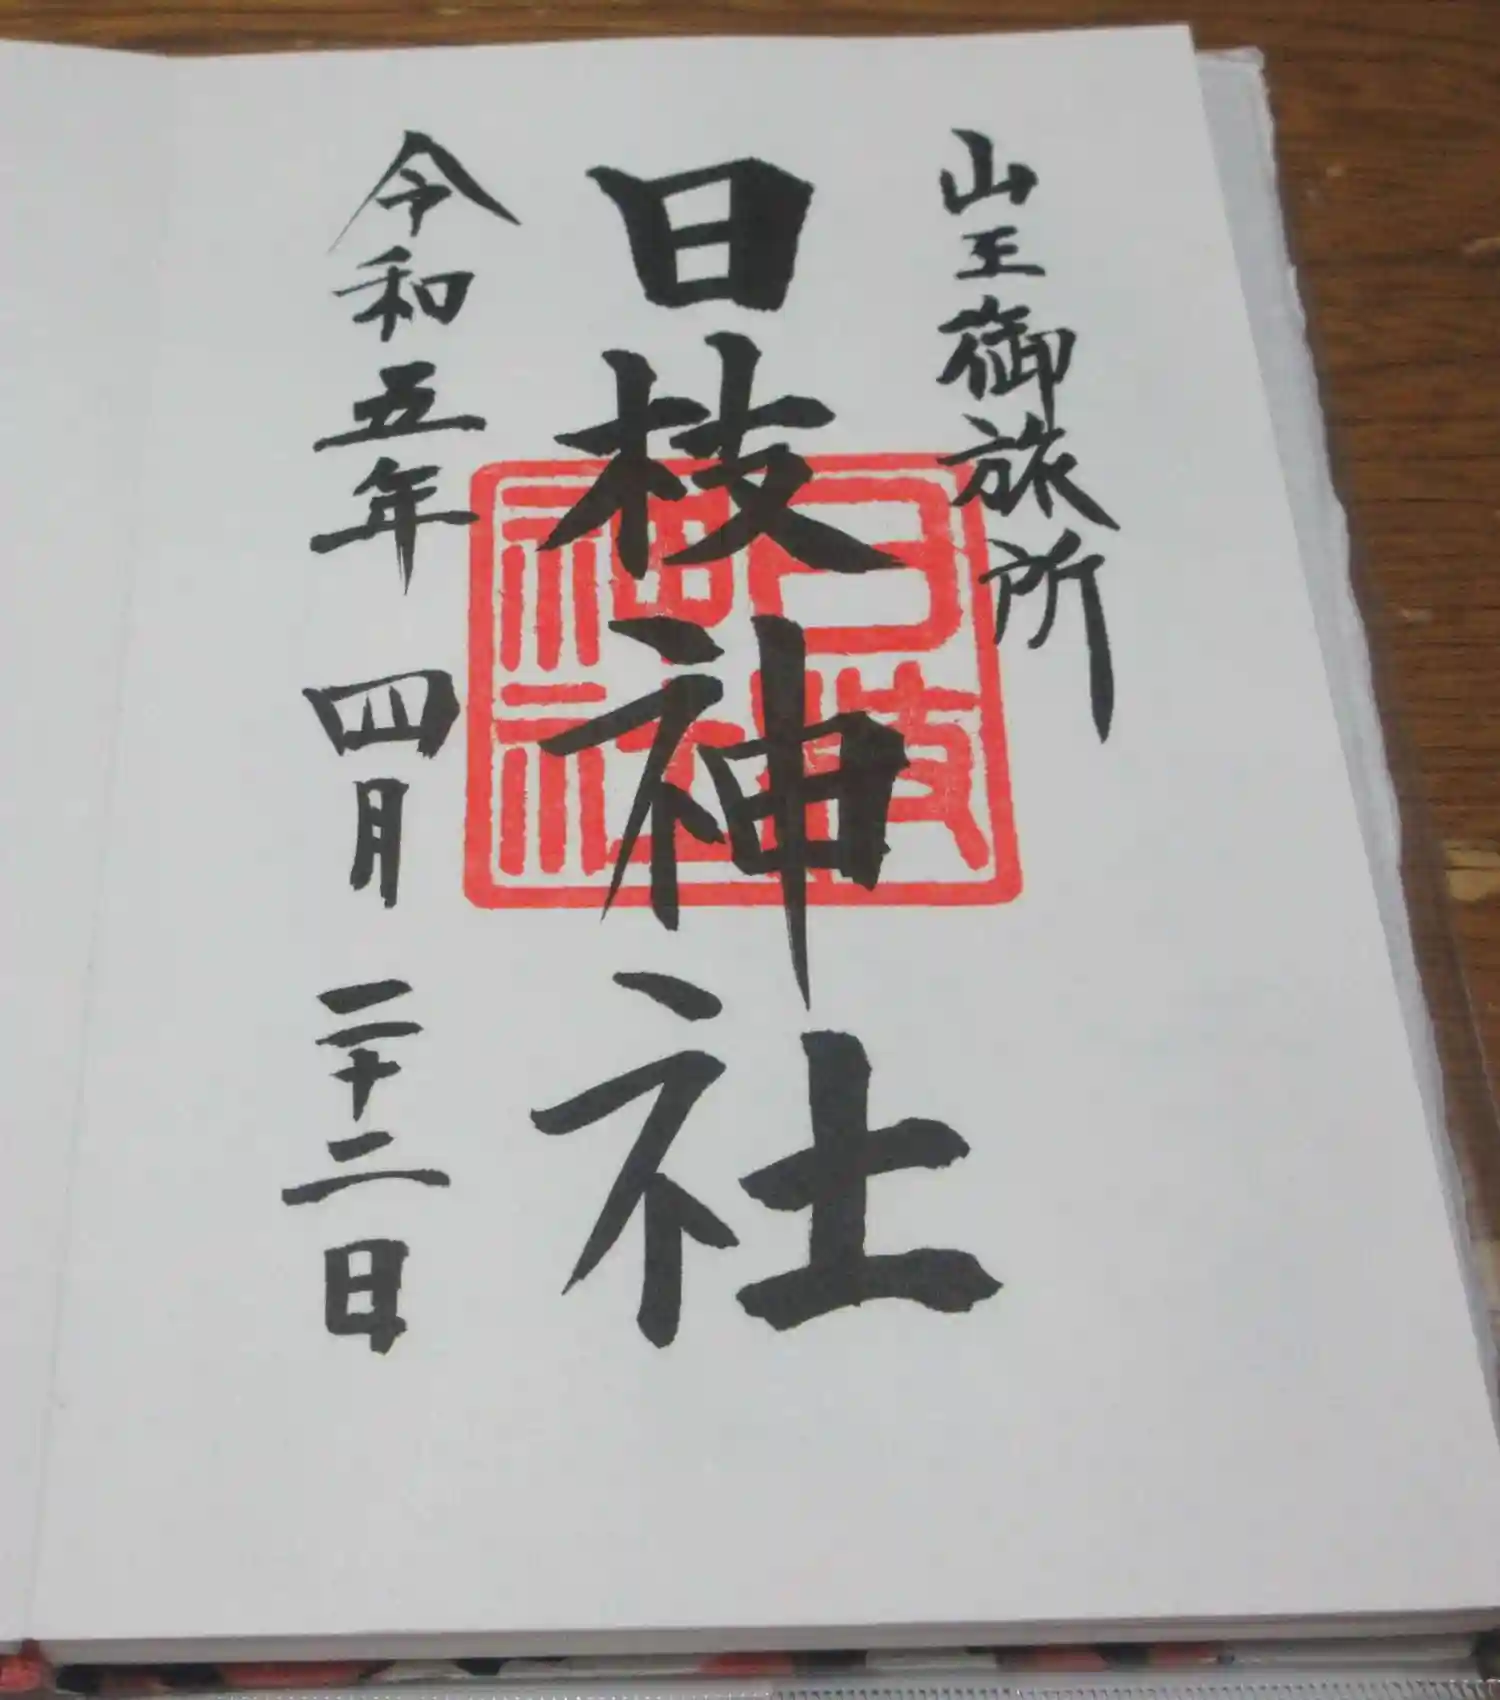 山王御旅所
日枝神社
日枝
神社
令和五年 四月 二十二日